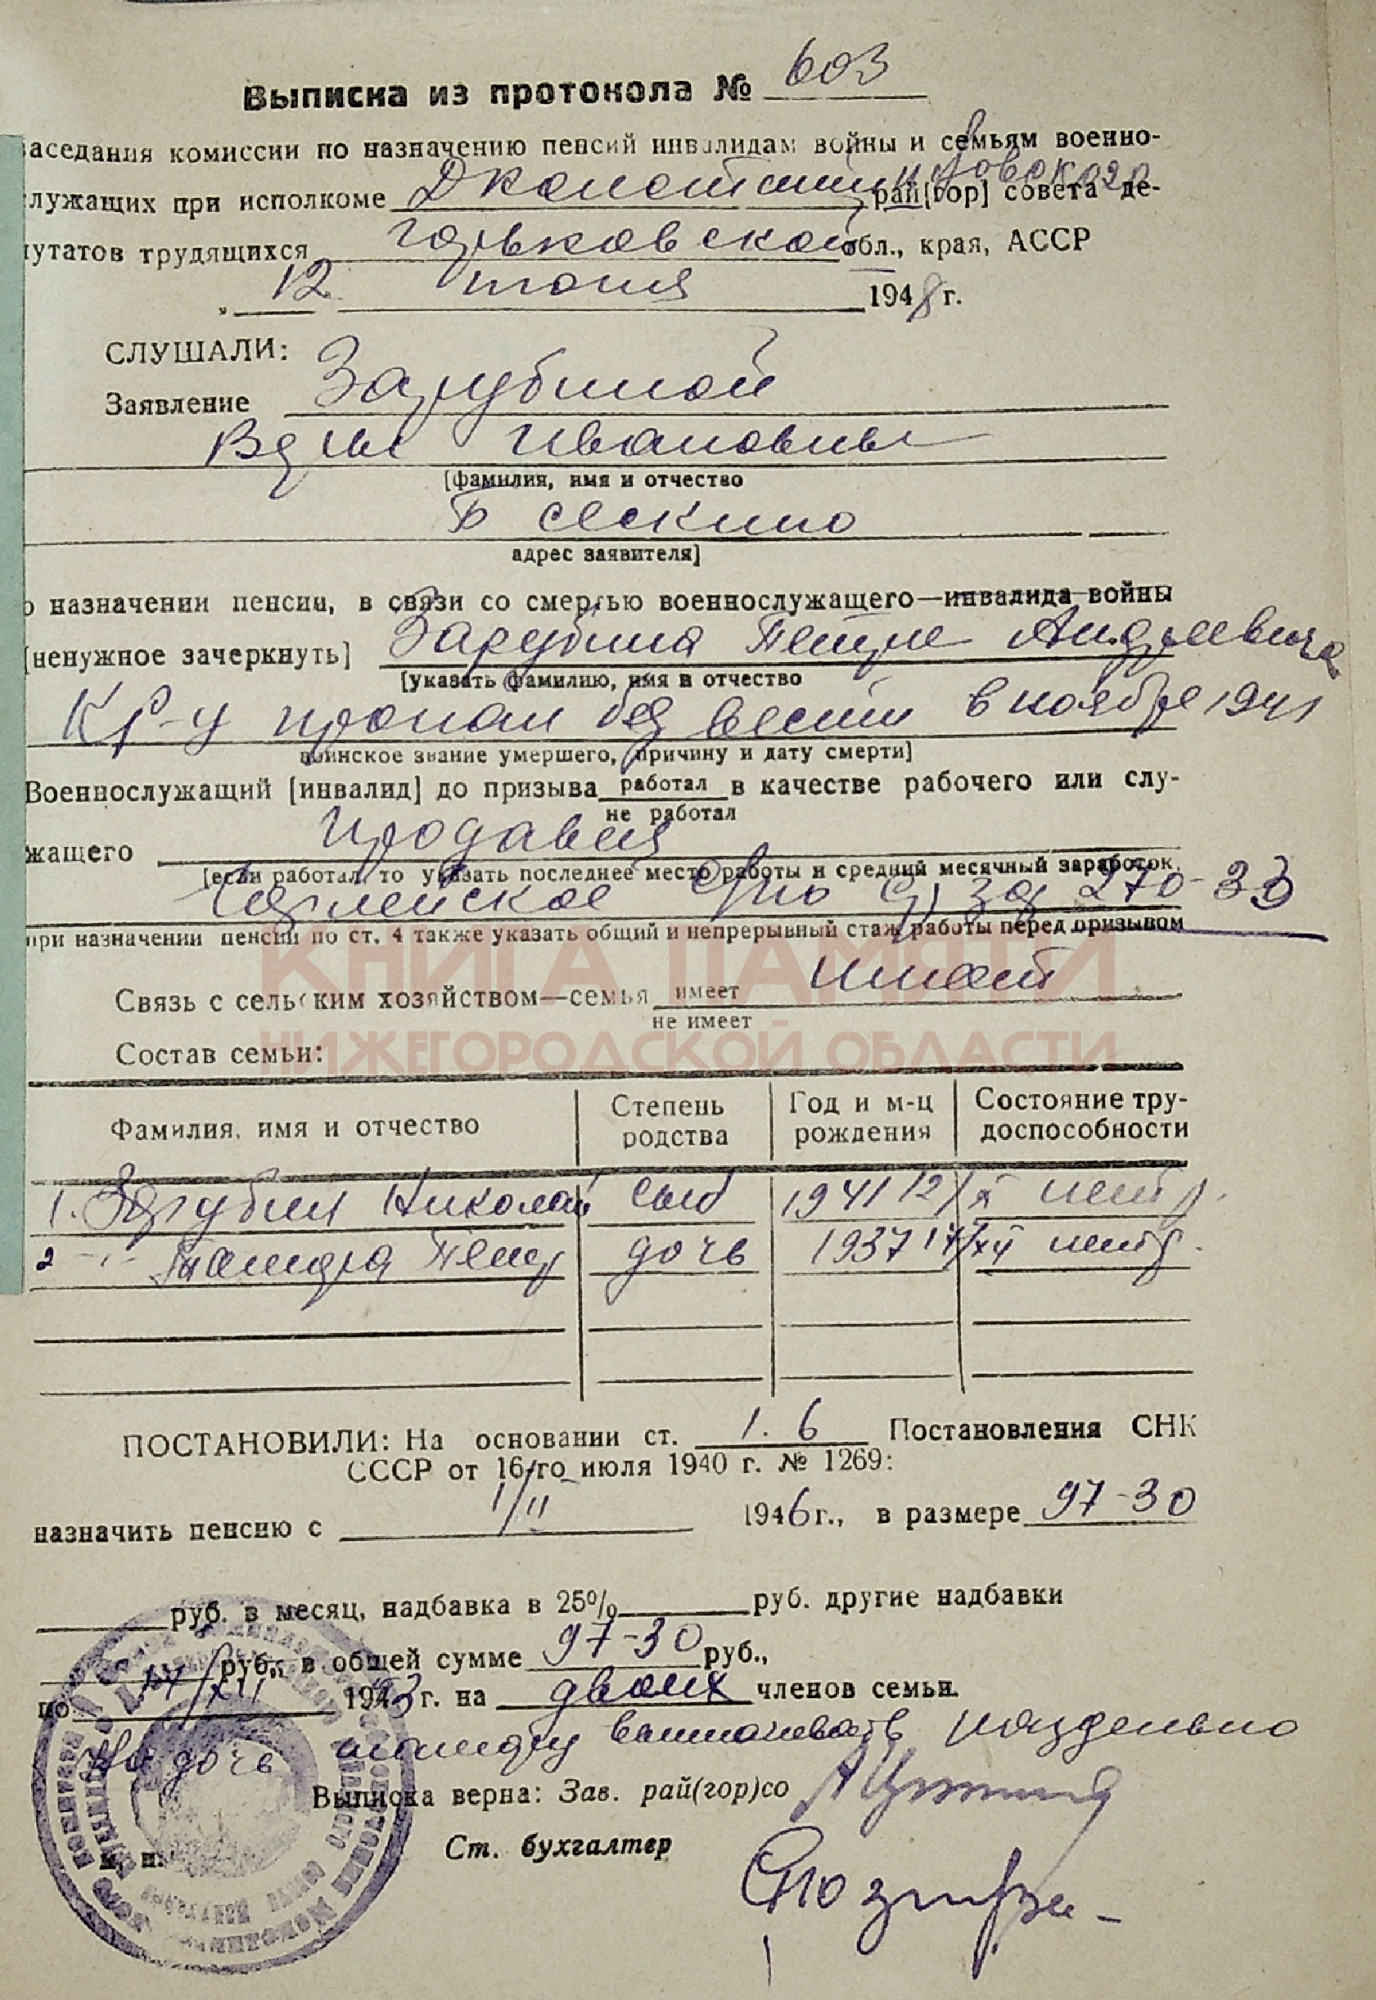 Выписка из протокола № 603
заседания комиссии по назначению пенсий инвалидам войны и семьям военно-
служащих при исполкоме Дконстантиновского рай[гор] совета де-
путатов трудящихся Горьковской обл., края, АССР
„ 12 июня 1948 г.
СЛУШАЛИ:
Заявление Зарубиной
Веры Ивановны
[фамилия, имя и отчество
Б Сескино
адрес заявителя]
о назначении пенсии, в связи со смертью военнослужащего—инвалида войны
[ненужное зачеркнуть] Зарубина Петра Андреевича
[указать фамилию, имя и отчество
Кр-ц пропал без вести в ноябре 1941
воинское звание умершего, причину и дату смерти]
Военнослужащий [инвалид] до призыва работал в качестве рабочего или слу-
не работал
жащего продавца
[если работал, то указать последнее место работы и средний месячный заработок,
270-33
при назначении пенсии по ст. 4 также указать общий и непрерывный стаж работы перед призывом
КНИГА ПАМЯТИ
Связь с сельским хозяйством—семья имеет имеет
не имеет
НИЖЕГОРОДСКОЙ ОБЛАСТИ
Состав семьи:
Фамилия, имя и отчество Степень родства Год и м-ц рождения Состояние трудоспособности
1. Зарубин Николай сын 1941 12/X нетр.
2 -"- Тамара Петр дочь 1937 17/XII нетр.
ПОСТАНОВИЛИ: На основании ст. 1. 6 Постановления СНК
СССР от 16-го июля 1940 г. № 1269:
назначить пенсию с 1/II 1946 г., в размере 97-30
руб. в месяц, надбавка в 25% руб. другие надбавки
руб., в общей сумме 97-30 руб.,
по 17/XII 1953 г. на двоих членов семьи.
На дочь Тамару выплачивать раздельно
Выписка верна: Зав. рай(гор)со
Ст. бухгалтер
м. п.